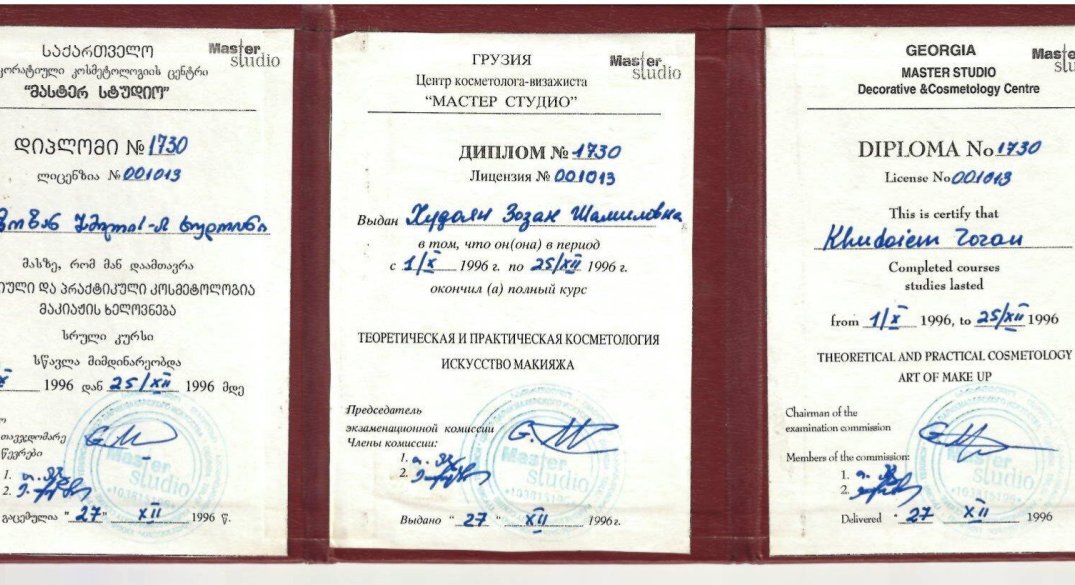 საქართველო
Master Studio
კოსმეტოლოგიის ცენტრი
“მასტერ სტუდიო”
დიპლომი № 1730
ლიცენზია № 001013
მასზე, რომ მან დაამთავრა
და პრაქტიკული კოსმეტოლოგია
მაკიაჟის ხელოვნება
სრული კურსი
სწავლა მიმდინარეობდა
1996 დან 25/XII 1996 მდე
თავჯდომარე
წევრები
1.
2.
გაცემულია “27” XII 1996 წ.
ГРУЗИЯ
Master Studio
Центр косметолога-визажиста
“МАСТЕР СТУДИО”
ДИПЛОМ № 1730
Лицензия № 001013
Выдан Худоян Зозан Шамиловна
в том, что он(она) в период
с 1/X 1996 г. по 25/XII 1996 г.
окончил (а) полный курс
ТЕОРЕТИЧЕСКАЯ И ПРАКТИЧЕСКАЯ КОСМЕТОЛОГИЯ
ИСКУССТВО МАКИЯЖА
Председатель
экзаменационной комиссии
Члены комиссии:
1.
2.
Master Studio
Выдано “27” XII 1996г.
GEORGIA
MASTER STUDIO
Decorative &Cosmetology Centre
DIPLOMA No 1730
License No 001013
This is certify that
Khudoien Zozan
Completed courses
studies lasted
from 1/X 1996, to 25/XII 1996
THEORETICAL AND PRACTICAL COSMETOLOGY
ART OF MAKE UP
Chairman of the
examination commission
Members of the commission:
1.
2.
Master Studio
Delivered “27 XII 1996